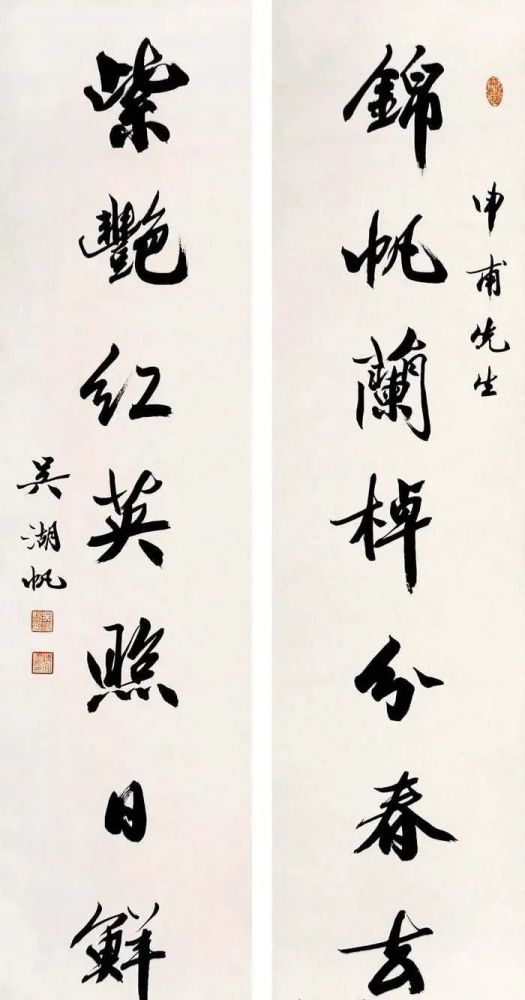 申甫先生
錦帆蘭棹分春去
紫艷紅英照日鮮
吳湖帆